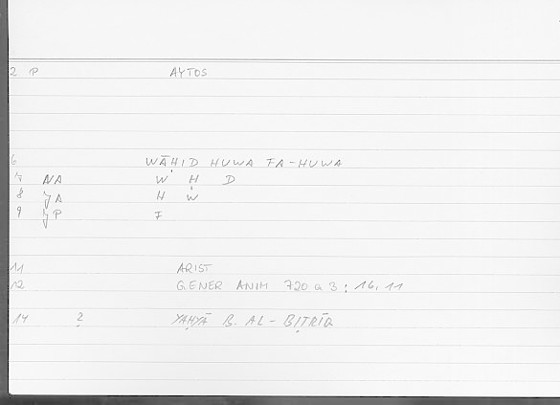 2 P AYTOS
6 WĀḤID HUWA FA-HUWA
7 NA W Ḥ D
8 JA H W
9 JP F
11 ARIST
12 GENER ANIM 720 a 3 : 16, 11
14 2 YAḤYĀ B. AL-BIṬRĪQ